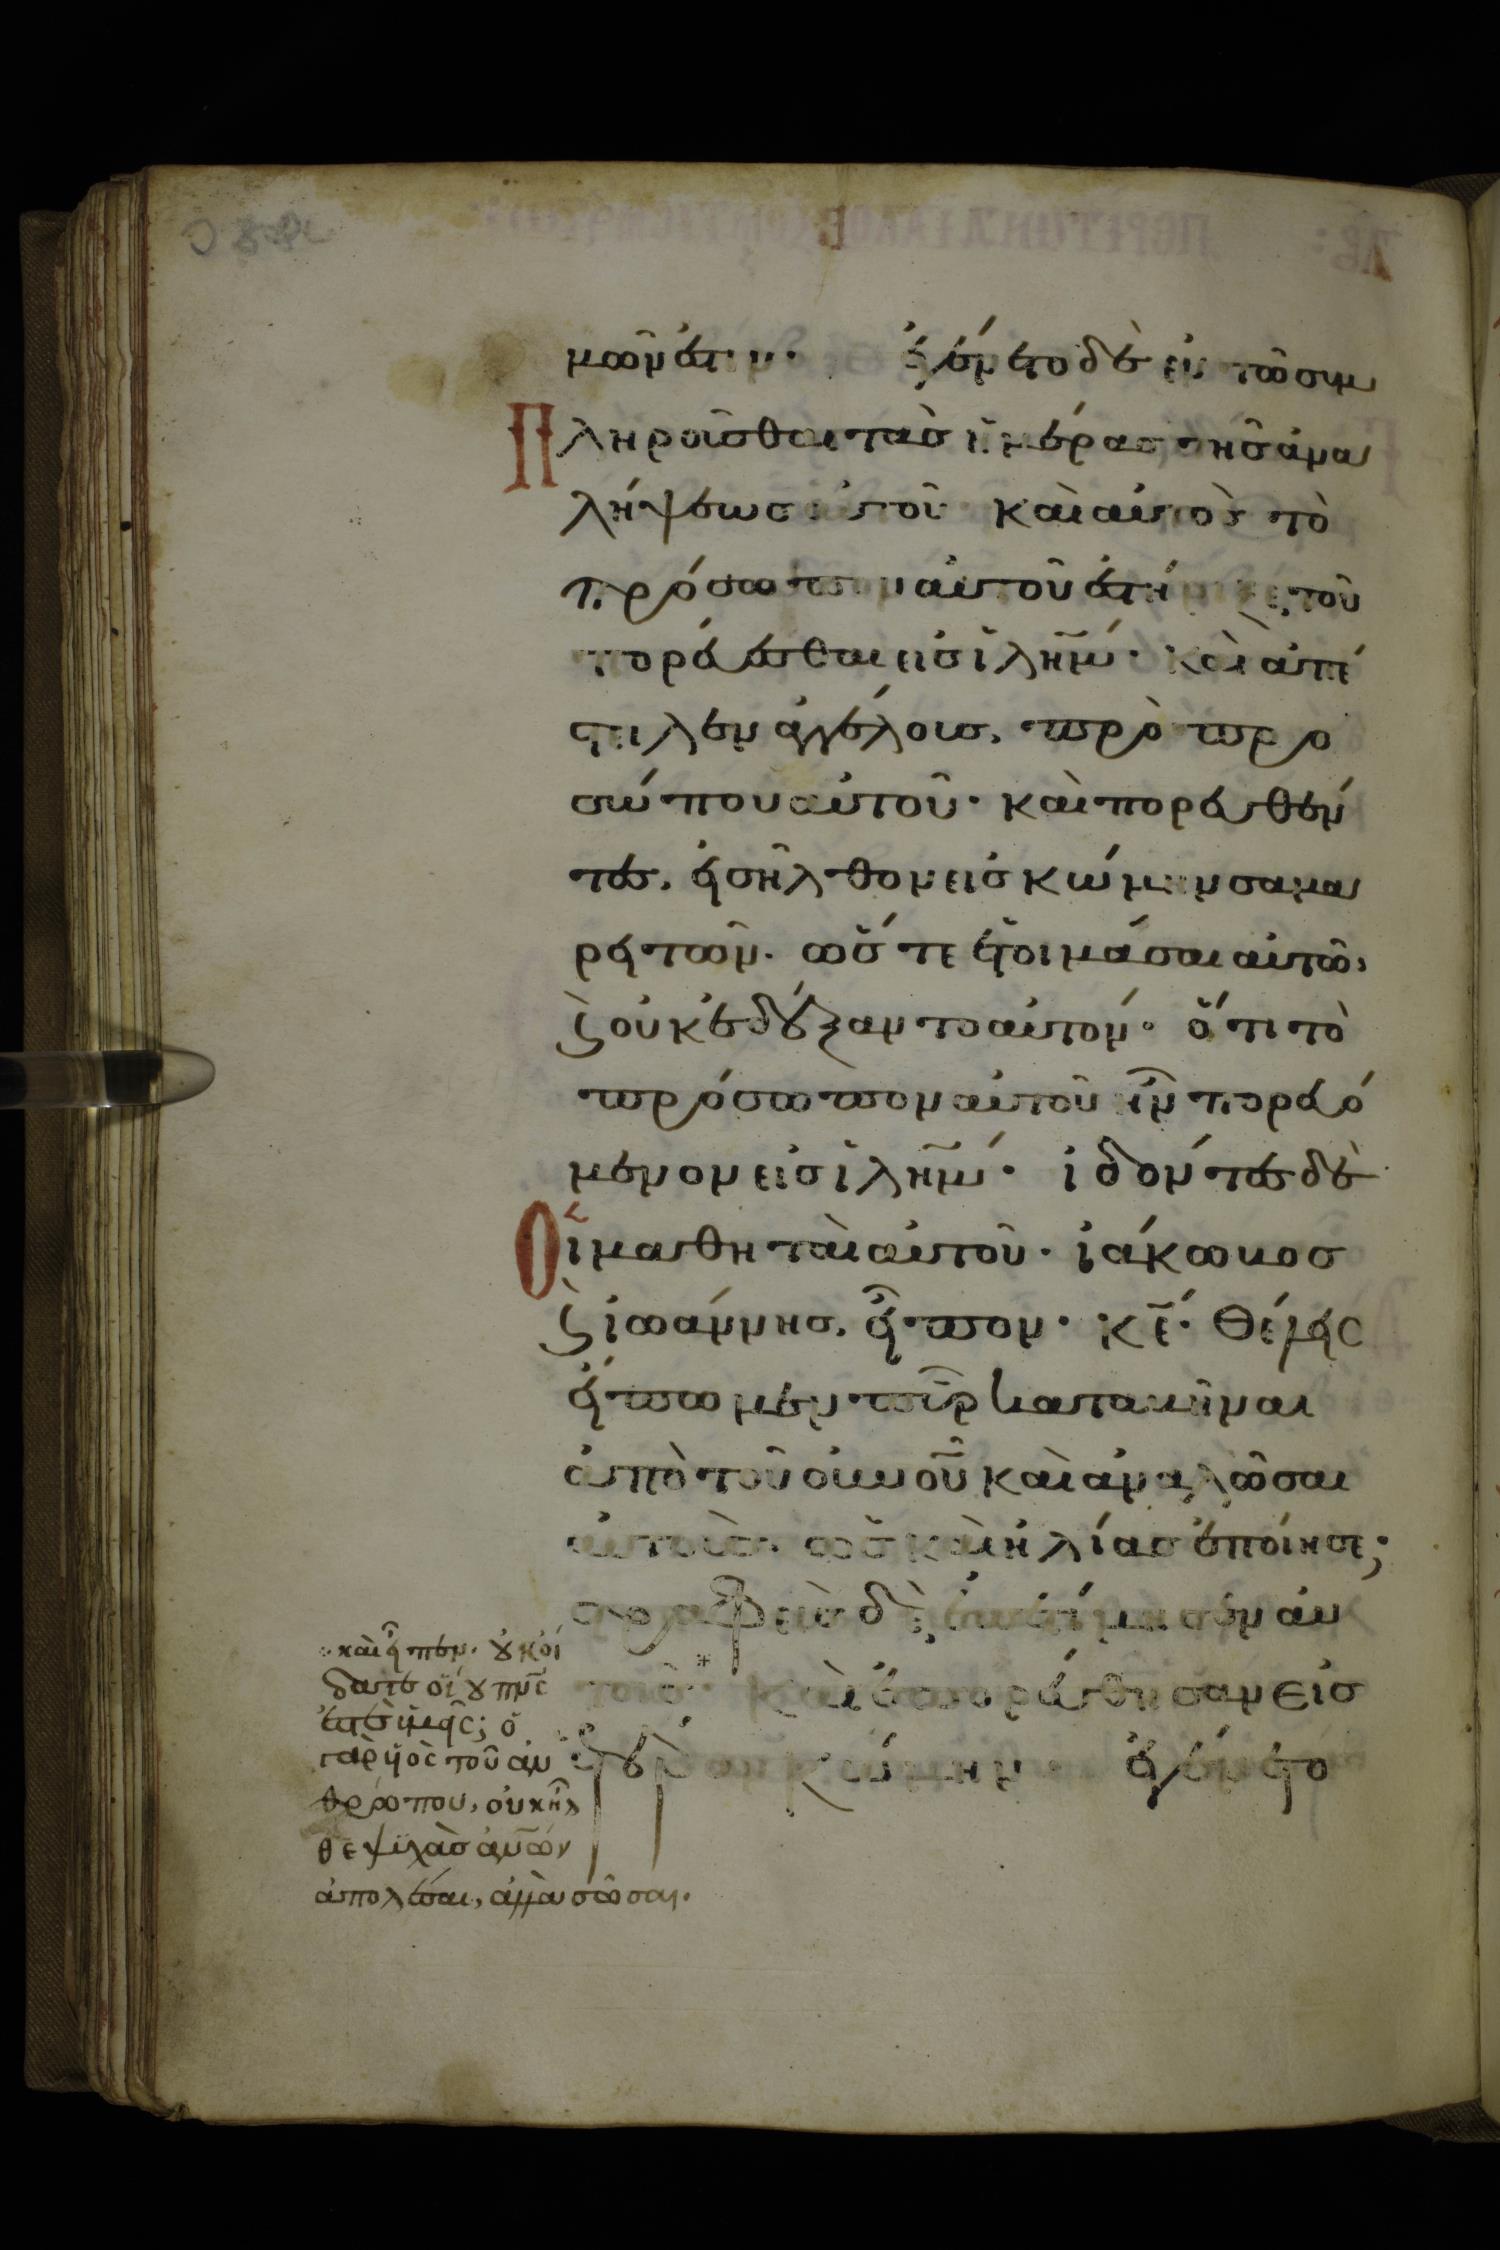 μῶν ἐστιν· ἐγένετο δὲ ἐν τῶ συμ
Πληροῦσθαι τὰς ἡμέρας τῆς ἀνα
λήψεως αὐτοῦ· καὶ αὐτὸς τὸ
πρόσωπον αὐτοῦ ἐστήριξε, τοῦ
πορεύεσθαι εἰς ἰλῆμ· καὶ ἀπέ
στειλεν ἀγγέλους, πρὸ προ
σώπου αὐτοῦ· καὶ πορευθέν
τες, εἰσῆλθον εἰς κώμην σαμα
ρειτῶν· ὥστε ἑτοιμάσαι αὐτῶ,
ϗ οὐκ ἐδέξαντο αὐτόν· ὅτι τὸ
πρόσωπον αὐτοῦ ἦν πορευό
μενον εἰς ἰλῆμ· ἰδόντες δὲ
Οἱ μαθηταὶ αὐτοῦ· ἰάκωβος
ϗ ἰωάννης, εἶπον· κε· θέλεις
εἴπωμεν πῦρ καταβῆναι
ἀπὸ τοῦ οὐνοῦ καὶ ἀναλῶσαι
αὐτούς· ὡς καὶ ἠλίας ἐποίησε;
στραφεὶς δὲ, ἐπετίμησεν αὐ
τοῖς· καὶ ἐπορεύθησαν εἰς
ἑτέραν κώμην· ἐγένετο
καὶ εἶπεν· οὐκ οἴ
δατε οἵου πνς
ἐστὲ ὑμεῖς; ὁ
γὰρ υἱὸς τοῦ ἀν
θρώπου, οὐκ ἦλ
θε ψυχὰς ἀνῶν
ἀπολέσαι, ἀλλὰ σῶσαι.